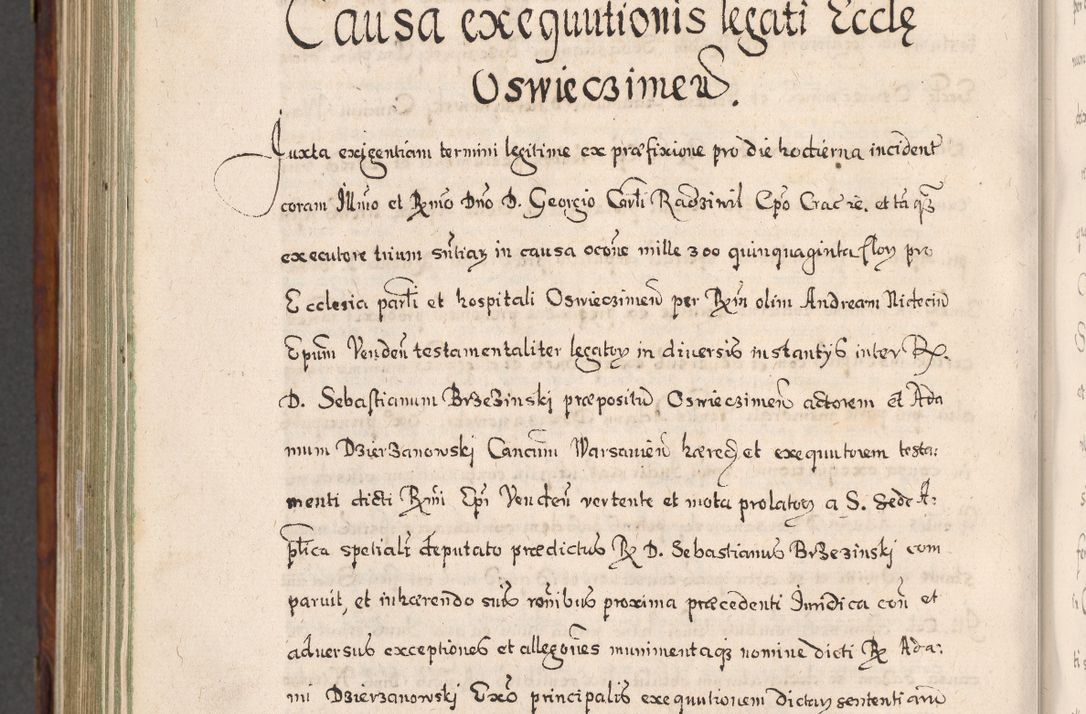 Causa exequutionis legati Ecclę
Oswieczimen̄.
Juxta exigentiam termini legitime ex præfixione pro die hodierna incident̄
coram Illm̄o et Rm̄o Dn̄o D. Georgio Carl̄i Radziwil Ep̄o Crac̄ ꝛc. et tāqꝫ
executore trium sn̄tiaꝝ in causa occōne mille 300 quinquaginta floꝝ pro
Ecclesia parl̄i et hospitali Oswieczimen̄ per Rm̄ olim Andream Nidecin̄
Ep̄um Venden̄ testamentaliter legatoꝝ in diversis instantijs inter R.
D. Sebastianum Brzezinski præpositū Oswieczimen̄ actorem et Ada
mum Dzierzanowski Canc̄um Warsavien̄ hæred̄ et exequutorem testa:
menti dicti Rm̄i Ep̄i Venden̄ vertente et mota prolatoꝝ a S. Sede A:
pl̄ica spetialr̄ deputato prædictus R. D. Sebastianus Brzezinski com
paruit, et inhærendo suis ron̄ibus proxima præcedenti Juridica con̄ et
adversus exceptiones et allegōnes munimentaqꝫ nomine dicti R. Ada:
mi Dzierzanowski Exēo principalis exequutionem dictaꝝ sententiarū